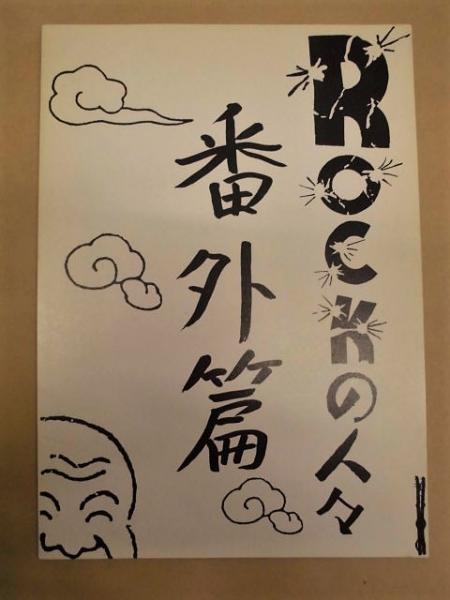 ROCKの人々
番外篇